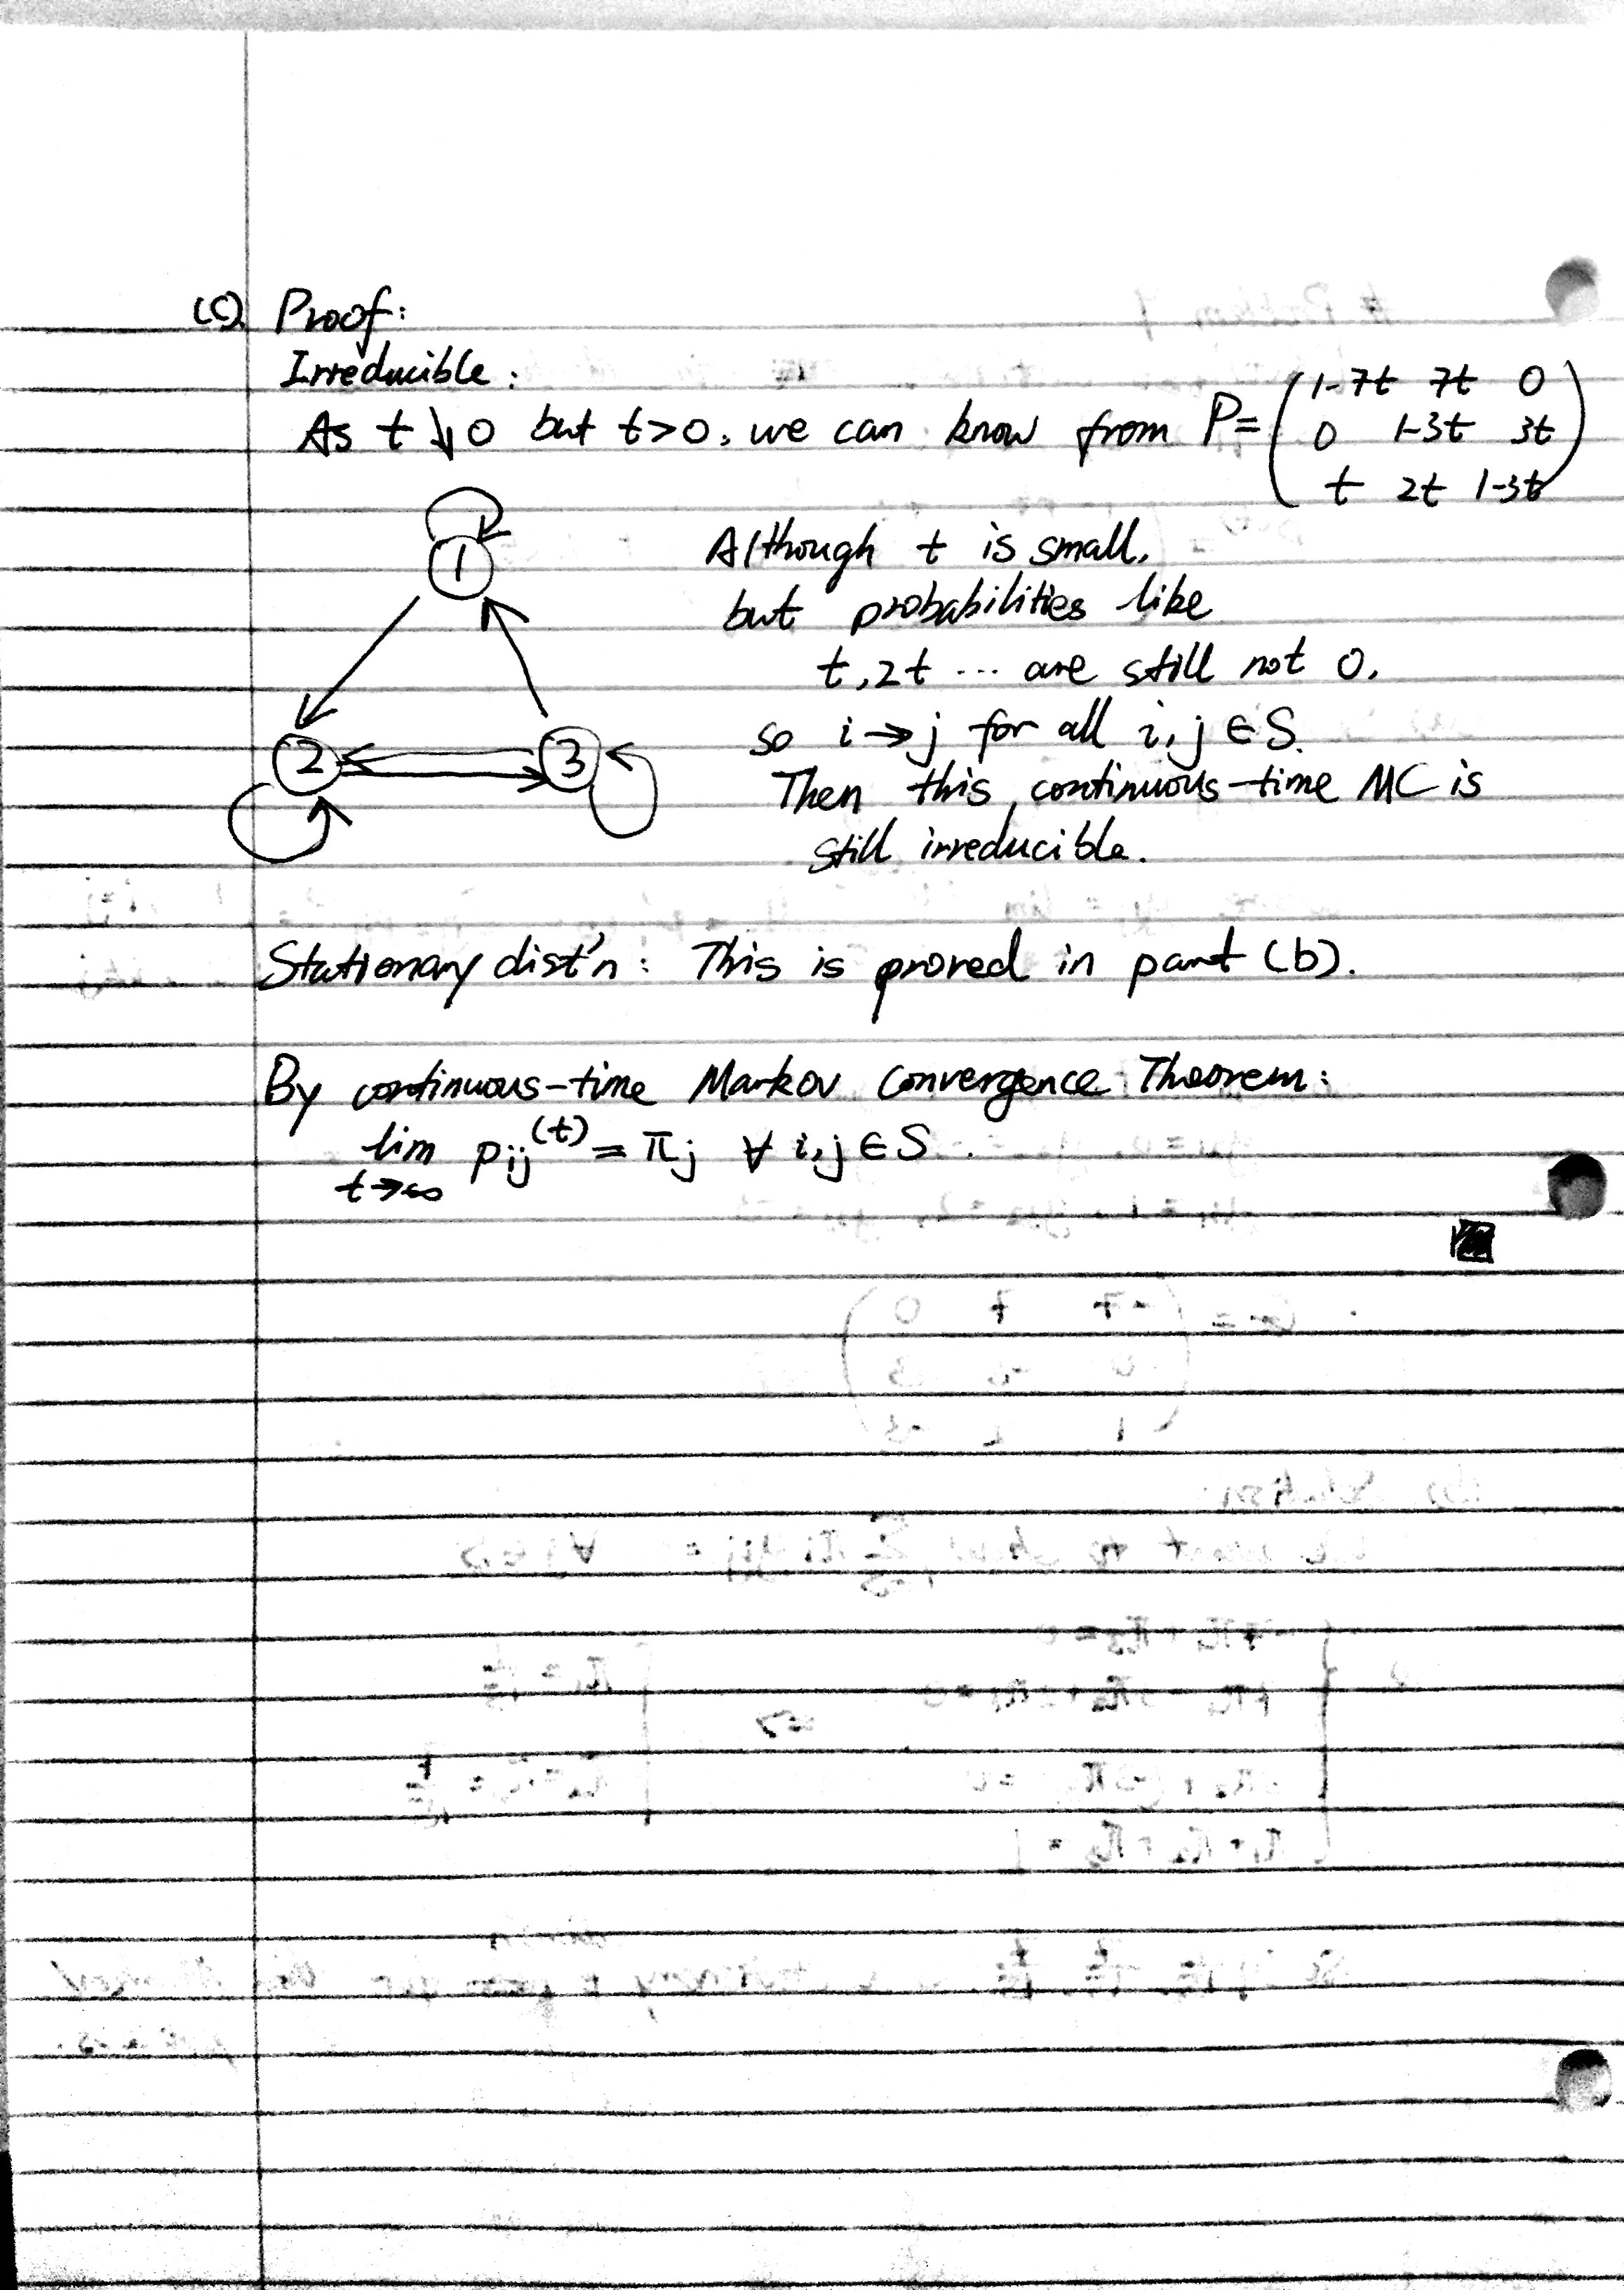 (c) Proof:
Irreducible:
As t ↓ 0 but t>0, we can know from P = ( 1-7t 7t 0
0 1-3t 3t
t 2t 1-3t )
1
2 3
Although t is small,
but probabilities like
t, 2t ... are still not 0,
so i → j for all i, j ∈ S.
Then this continuous-time MC is
still irreducible.
Stationary dist'n: This is proved in part (b).
By continuous-time Markov Convergence Theorem:
lim t→∞ pij^(t) = πj ∀ i,j ∈ S.